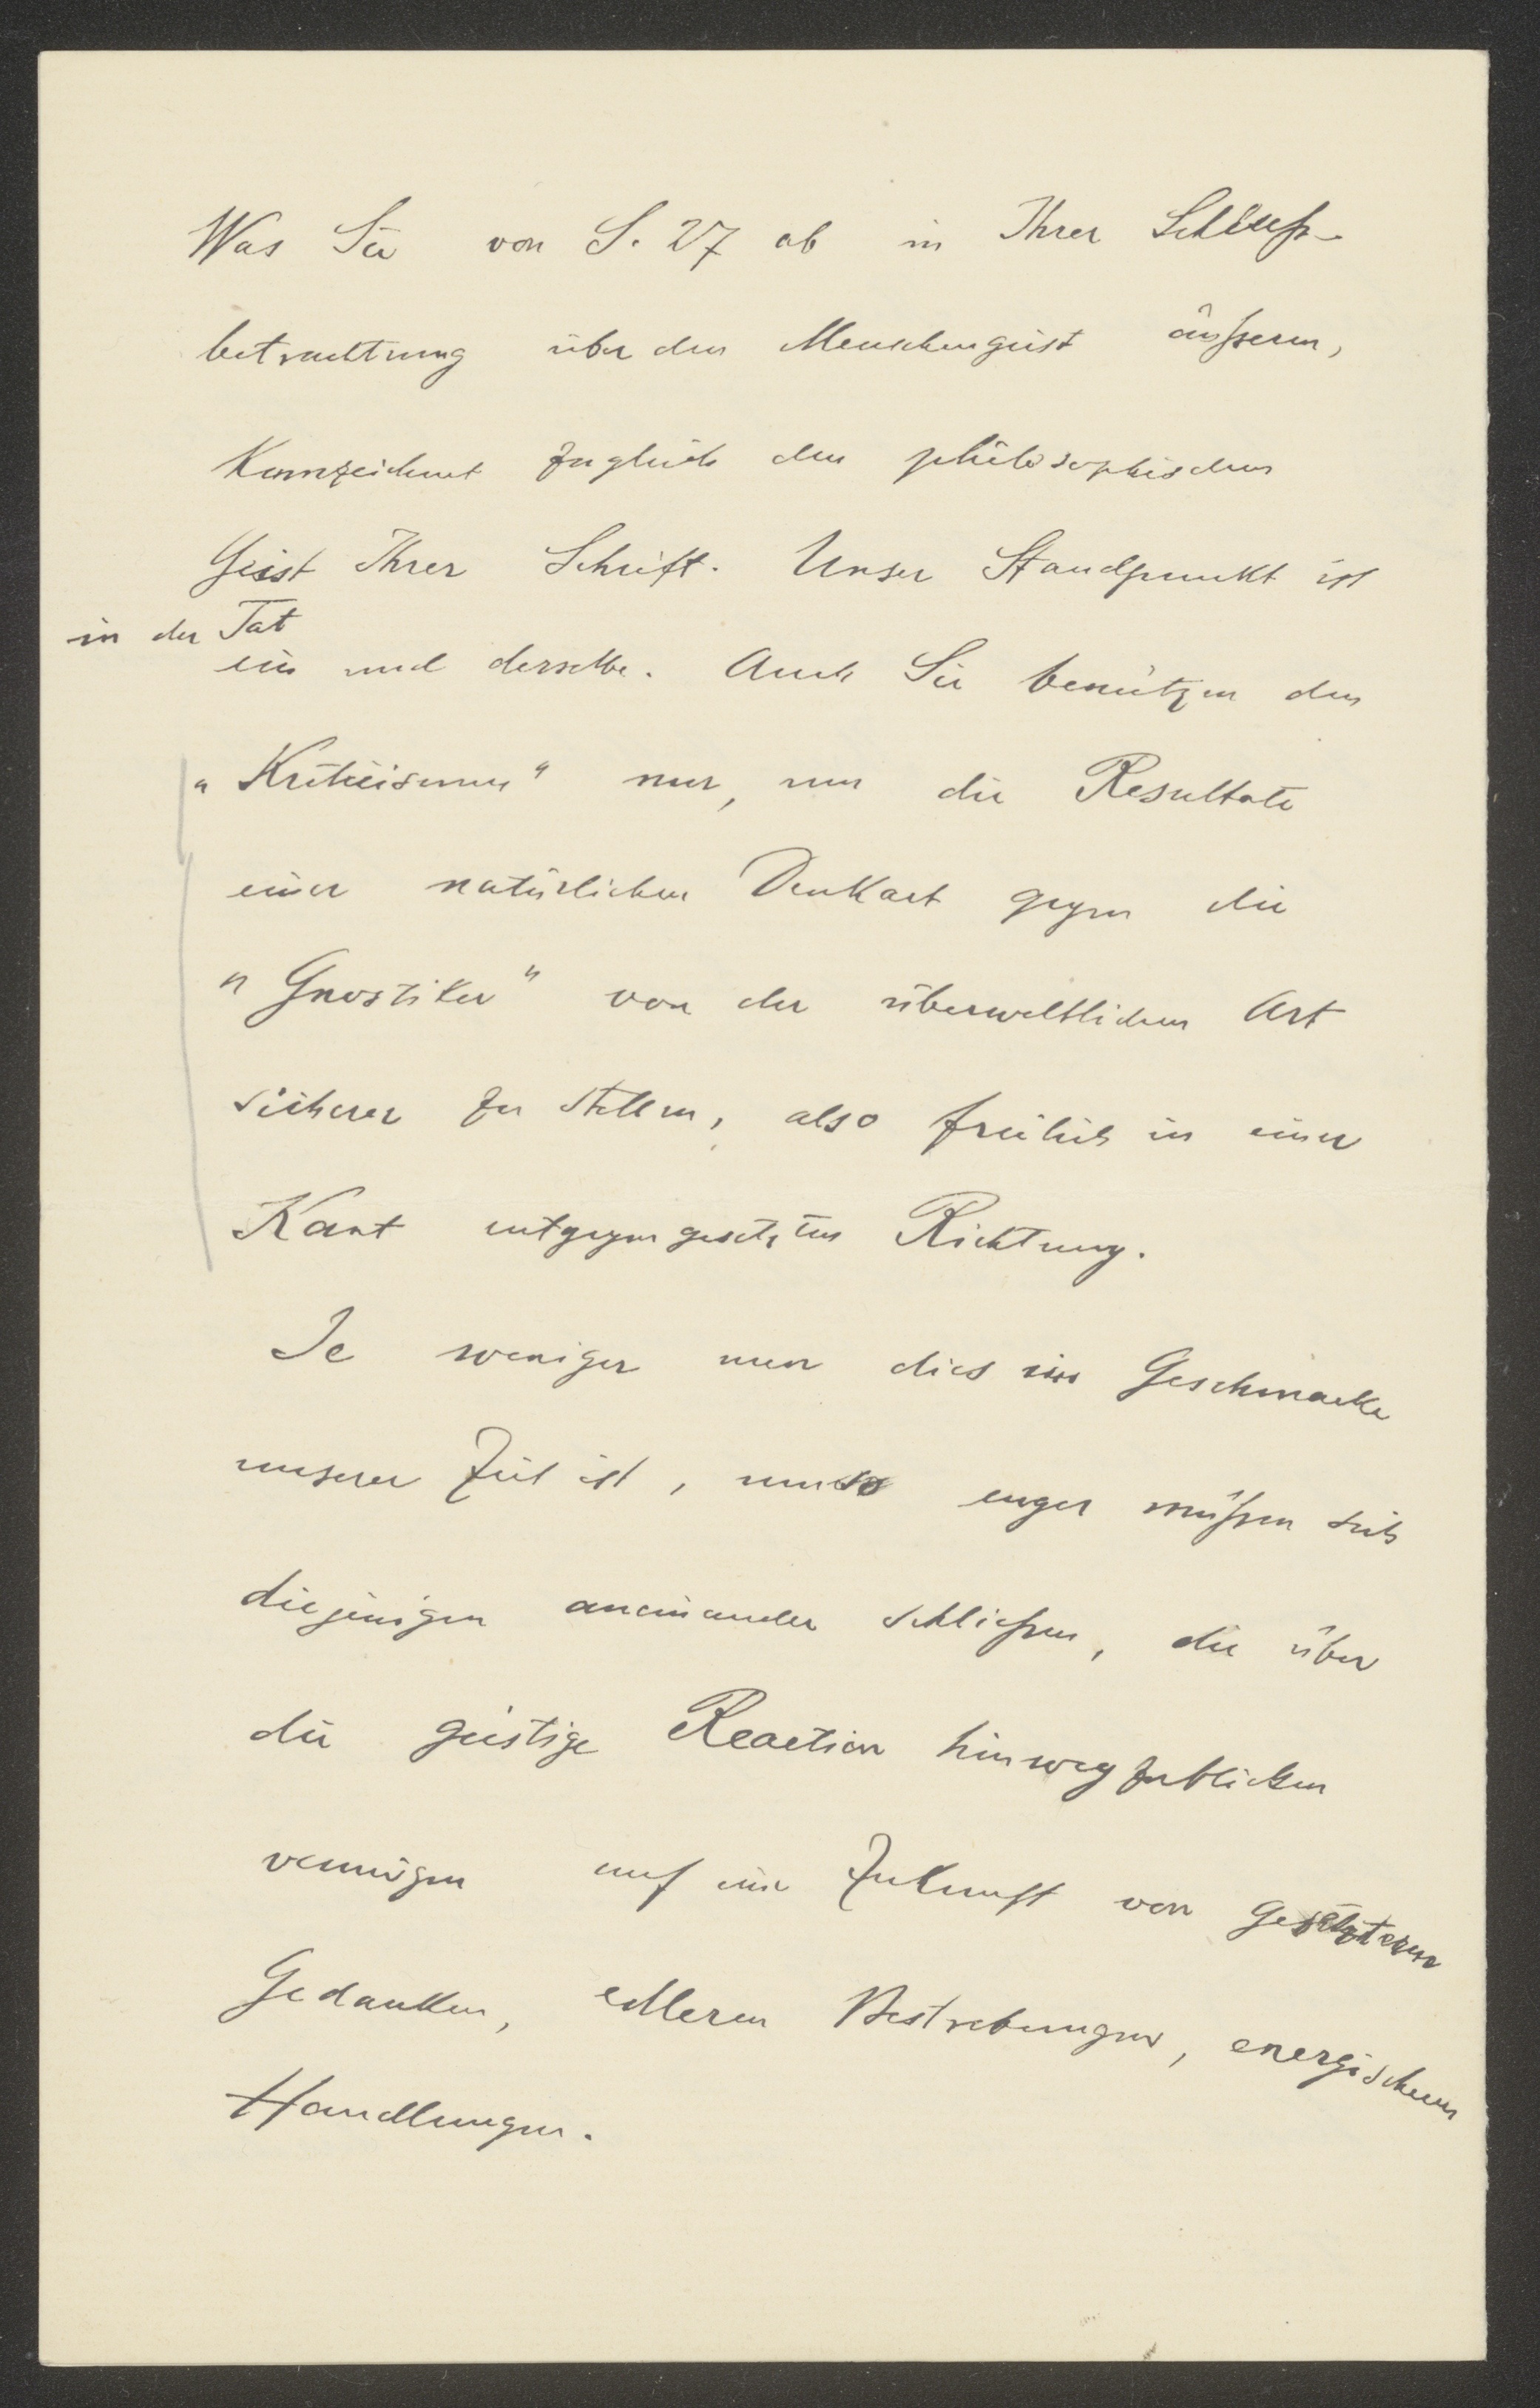 Was Sie von S. 27 ab in Ihrer Schluß-
betrachtung über den Menschengeist äußern,
Kennzeichnet zugleich den philosophischen
Geist Ihrer Schrift. Unser Standpunkt ist
in der Tat
ein und derselbe. Auch Sie benützen den
„Kriticismus“ nur, um die Resultate
einer natürlichen Denkart gegen die
„Gnostiker“ von der überweltlichen Art
sicherer zu stellen, also freilich in einer
Kant entgegengesetzten Richtung.
Je weniger nun dies im Geschmacke
unserer Zeit ist, umso enger müßen sich
diejenigen aneinander schließen, die über
die geistige Reaction hinwegzublicken
vermögen auf eine Zukunft von
Gedanken, edleren Bestrebungen, energischeren
Handlungen.